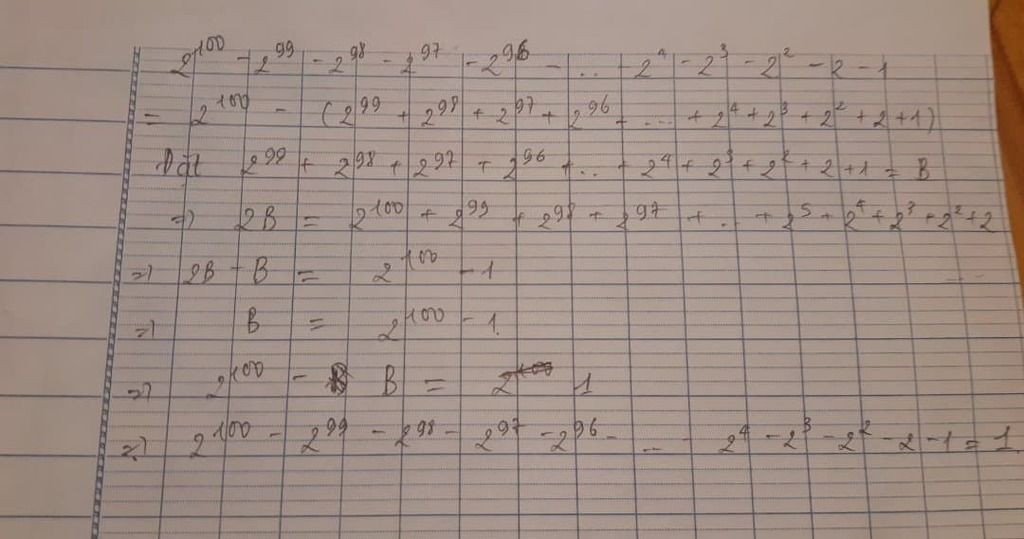 2¹⁰⁰ - 2⁹⁹ - 2⁹⁸ - 2⁹⁷ - 2⁹⁶ - ... - 2⁴ - 2³ - 2² - 2 - 1
= 2¹⁰⁰ - (2⁹⁹ + 2⁹⁸ + 2⁹⁷ + 2⁹⁶ + ... + 2⁴ + 2³ + 2² + 2 + 1)
Đặt 2⁹⁹ + 2⁹⁸ + 2⁹⁷ + 2⁹⁶ + ... + 2⁴ + 2³ + 2² + 2 + 1 = B
=) 2B = 2¹⁰⁰ + 2⁹⁹ + 2⁹⁸ + 2⁹⁷ + ... + 2⁵ + 2⁴ + 2³ + 2² + 2
=) 2B - B = 2¹⁰⁰ - 1
=) B = 2¹⁰⁰ - 1
=) 2¹⁰⁰ - B = 1
=) 2¹⁰⁰ - 2⁹⁹ - 2⁹⁸ - 2⁹⁷ - 2⁹⁶ - ... - 2⁴ - 2³ - 2² - 2 - 1 = 1